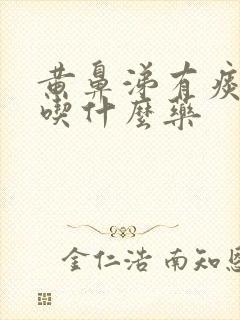 黄鼻涕有痰
喫什麼藥
金仁浩 南知恩